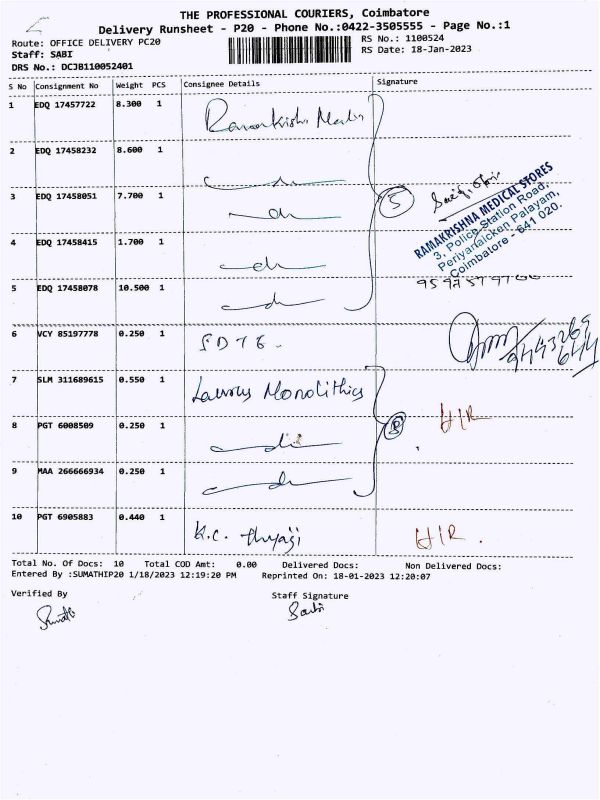 THE PROFESSIONAL COURIERS, Coimbatore
Delivery Runsheet - P20 - Phone No.:0422-3505555 - Page No.:1
Route: OFFICE DELIVERY PC20
RS No.: 1100524
Staff: SABI
RS Date: 18-Jan-2023
DRS No.: DCJB110052401
S No Consignment No Weight PCS Consignee Details Signature
1 EDQ 17457722 8.300 1
2 EDQ 17458232 8.600 1
3 EDQ 17458051 7.700 1
5
RAMAKRISHNA MEDICAL STORES
3, Police Station Road,
Periyanaicken Palayam,
Coimbatore - 641 020.
4 EDQ 17458415 1.700 1
5 EDQ 17458078 10.500 1
6 VCY 85197778 0.250 1
7 SLM 311689615 0.550 1 Laurus Monolithics
8 PGT 6008509 0.250 1
9 MAA 266666934 0.250 1
10 PGT 6905883 0.440 1 K.C.
Total No. Of Docs: 10 Total COD Amt: 0.00 Delivered Docs: Non Delivered Docs:
Entered By :SUMATHIP20 1/18/2023 12:19:20 PM Reprinted On: 18-01-2023 12:20:07
Verified By
Staff Signature